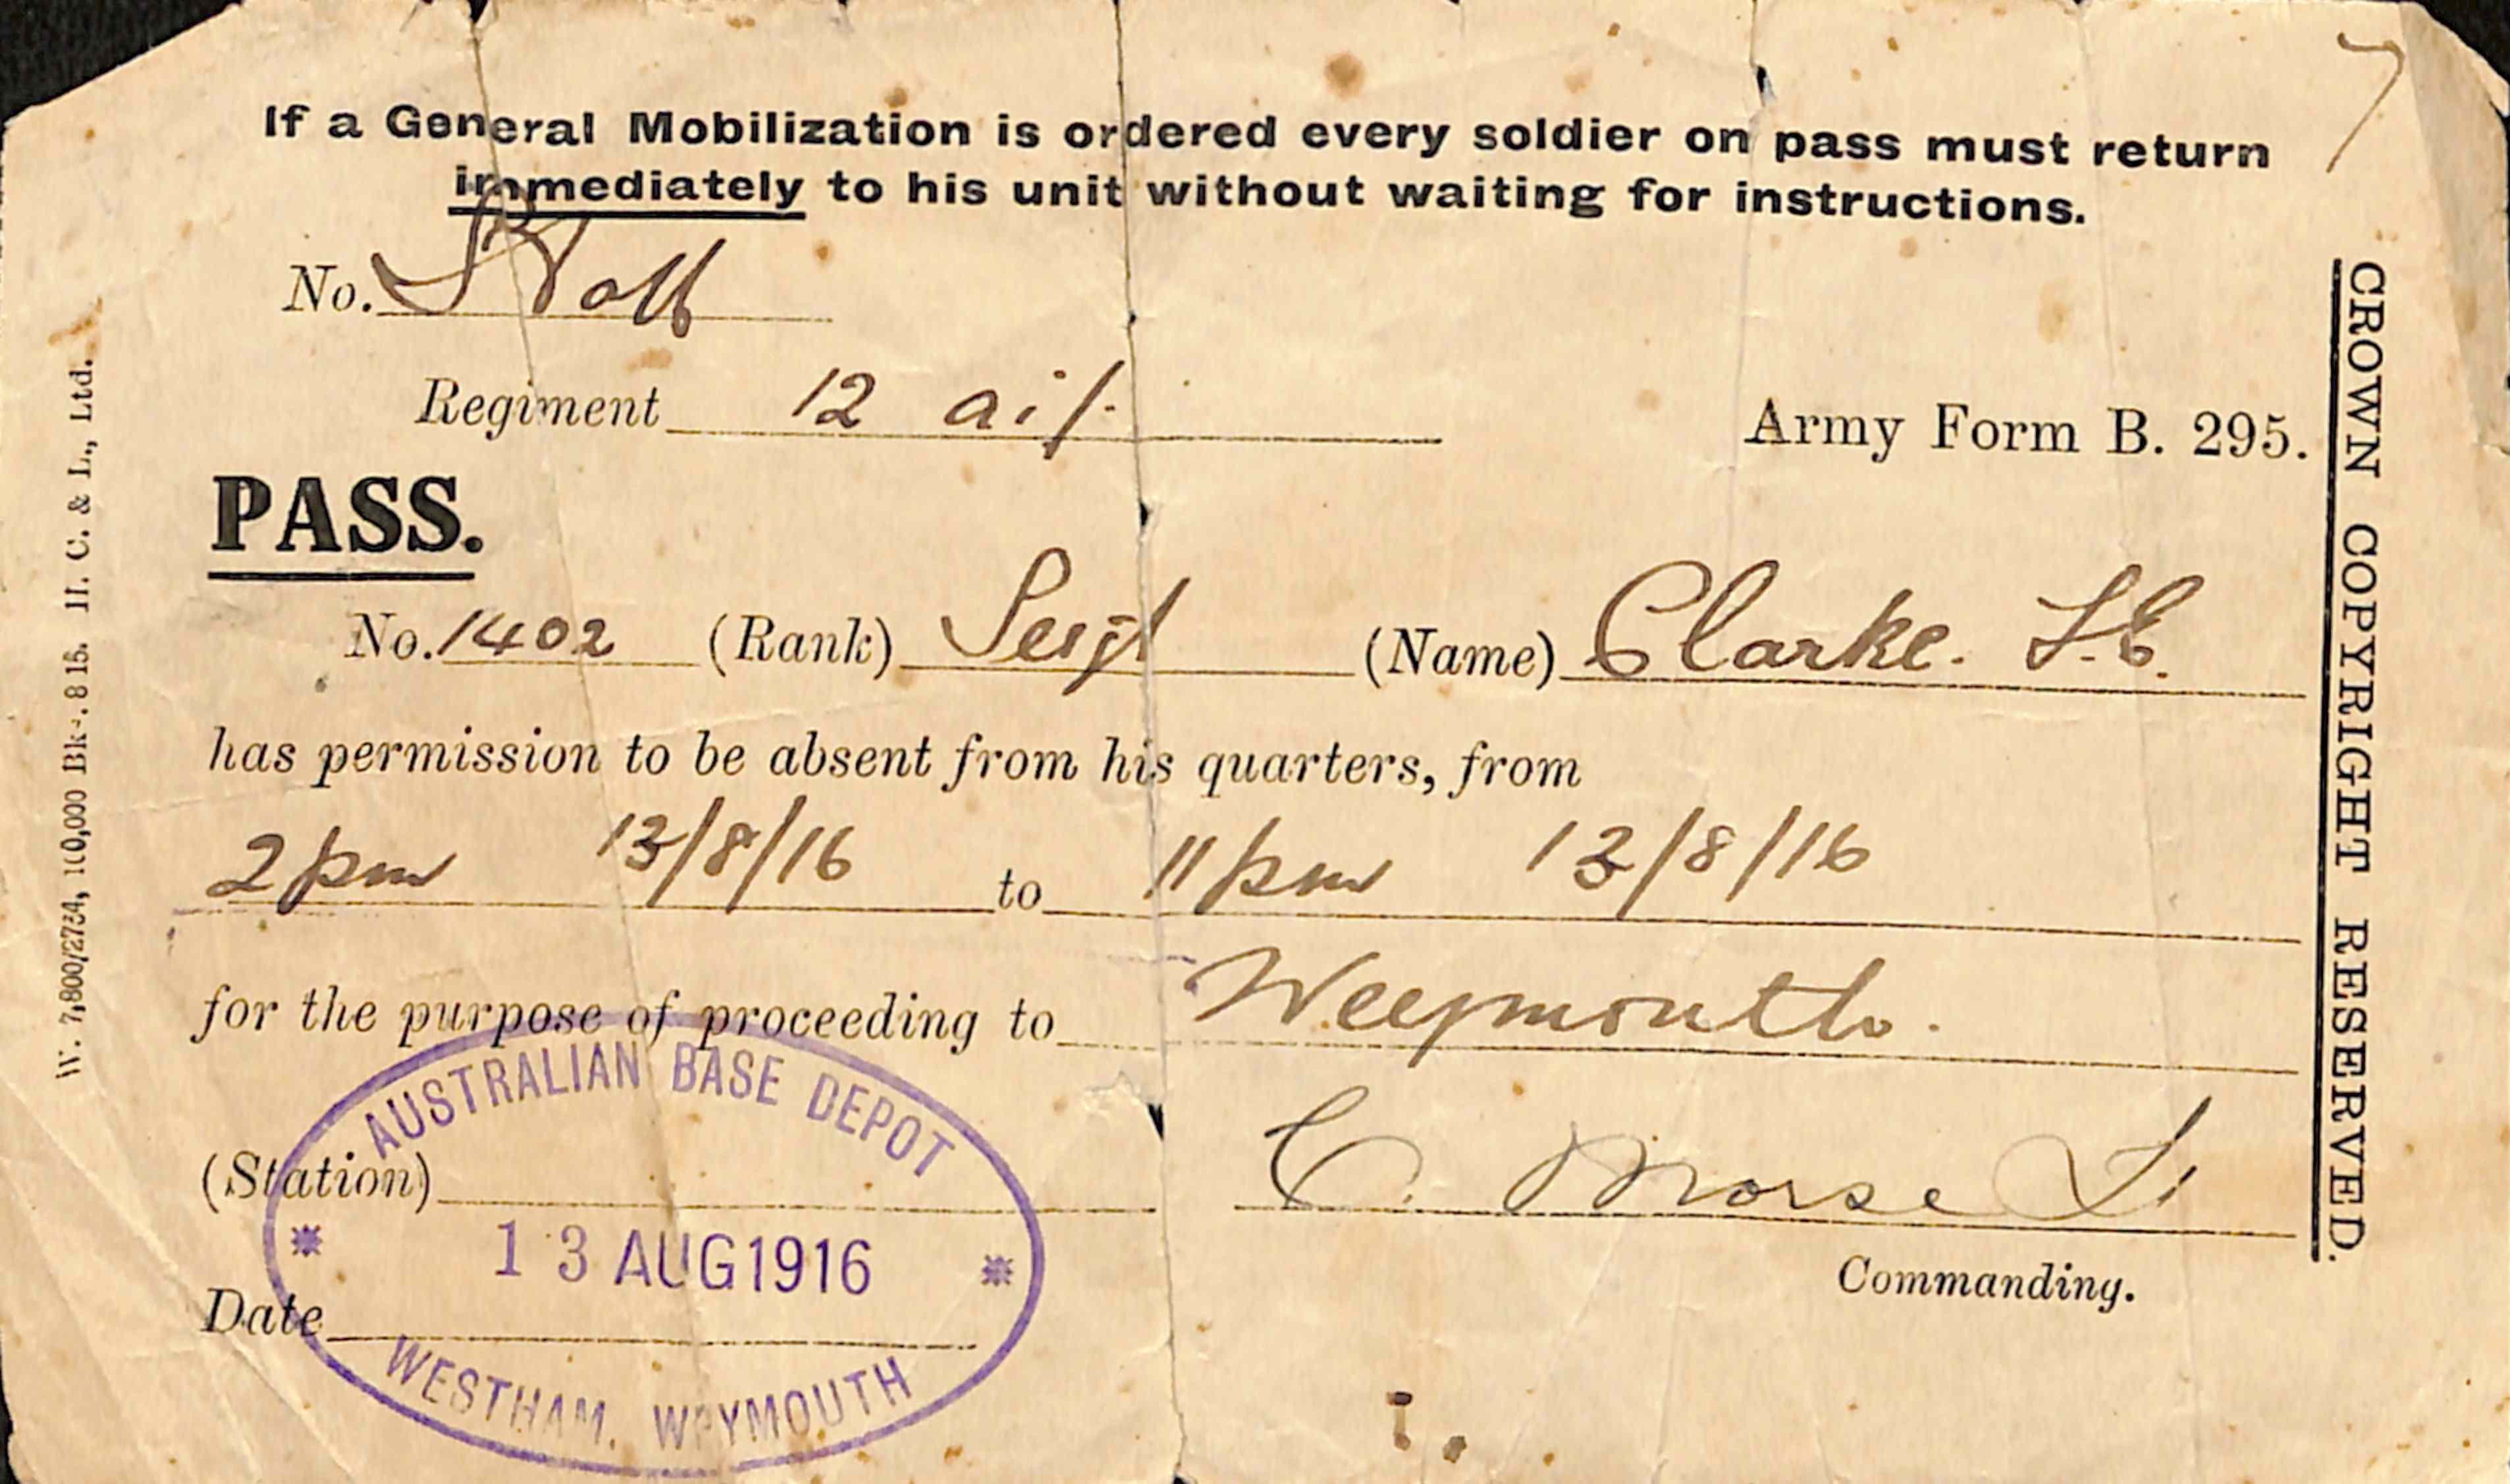 If a General Mobilization is ordered every soldier on pass must return
immediately to his unit without waiting for instructions.
No.
Regiment 12 aif.
Army Form B. 295.
PASS.
No. 1402 (Rank) Sergt (Name) Clarke.
has permission to be absent from his quarters, from
2pm 13/8/16 to 11pm 13/8/16
for the purpose of proceeding to Weymouth.
AUSTRALIAN BASE DEPOT
(Station)
C. Morse Lt
13 AUG 1916
Commanding.
Date
WESTHAM. WEYMOUTH
CROWN COPYRIGHT RESERVED.
H. C. & L., Ltd.